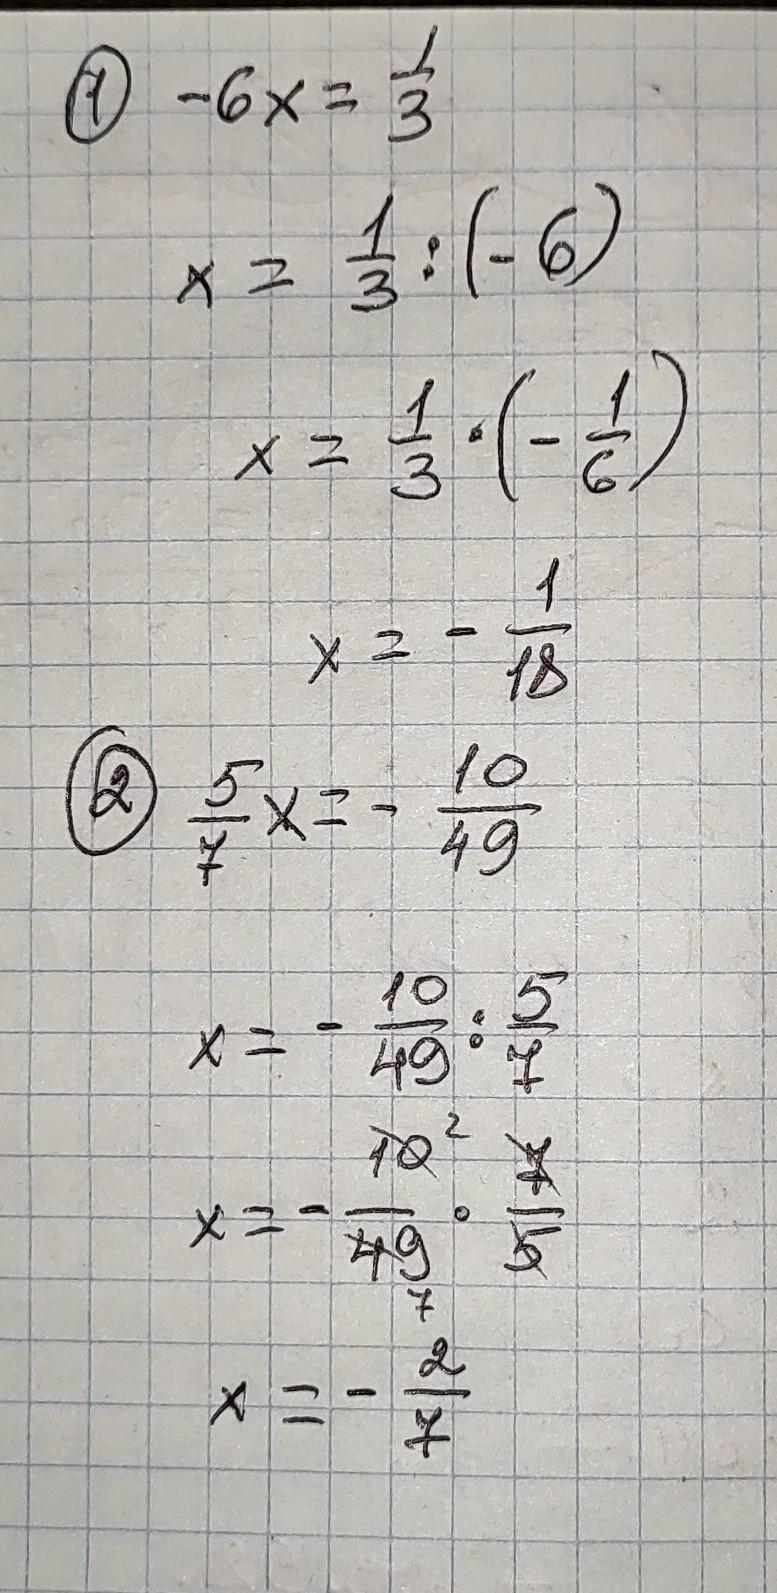 ① -6x = 1/3
x = 1/3 : (-6)
x = 1/3 · (- 1/6)
x = - 1/18
② 5/7 x = - 10/49
x = - 10/49 : 5/7
x = - 10²/49₇ · 7/5
x = - 2/7